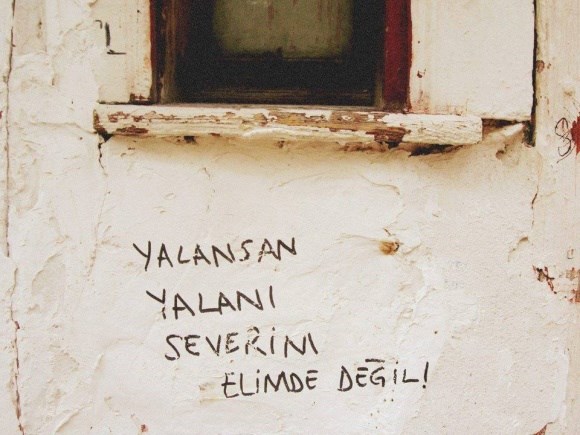 YALANSAN
YALANI
SEVERİM
ELİMDE DEĞİL!